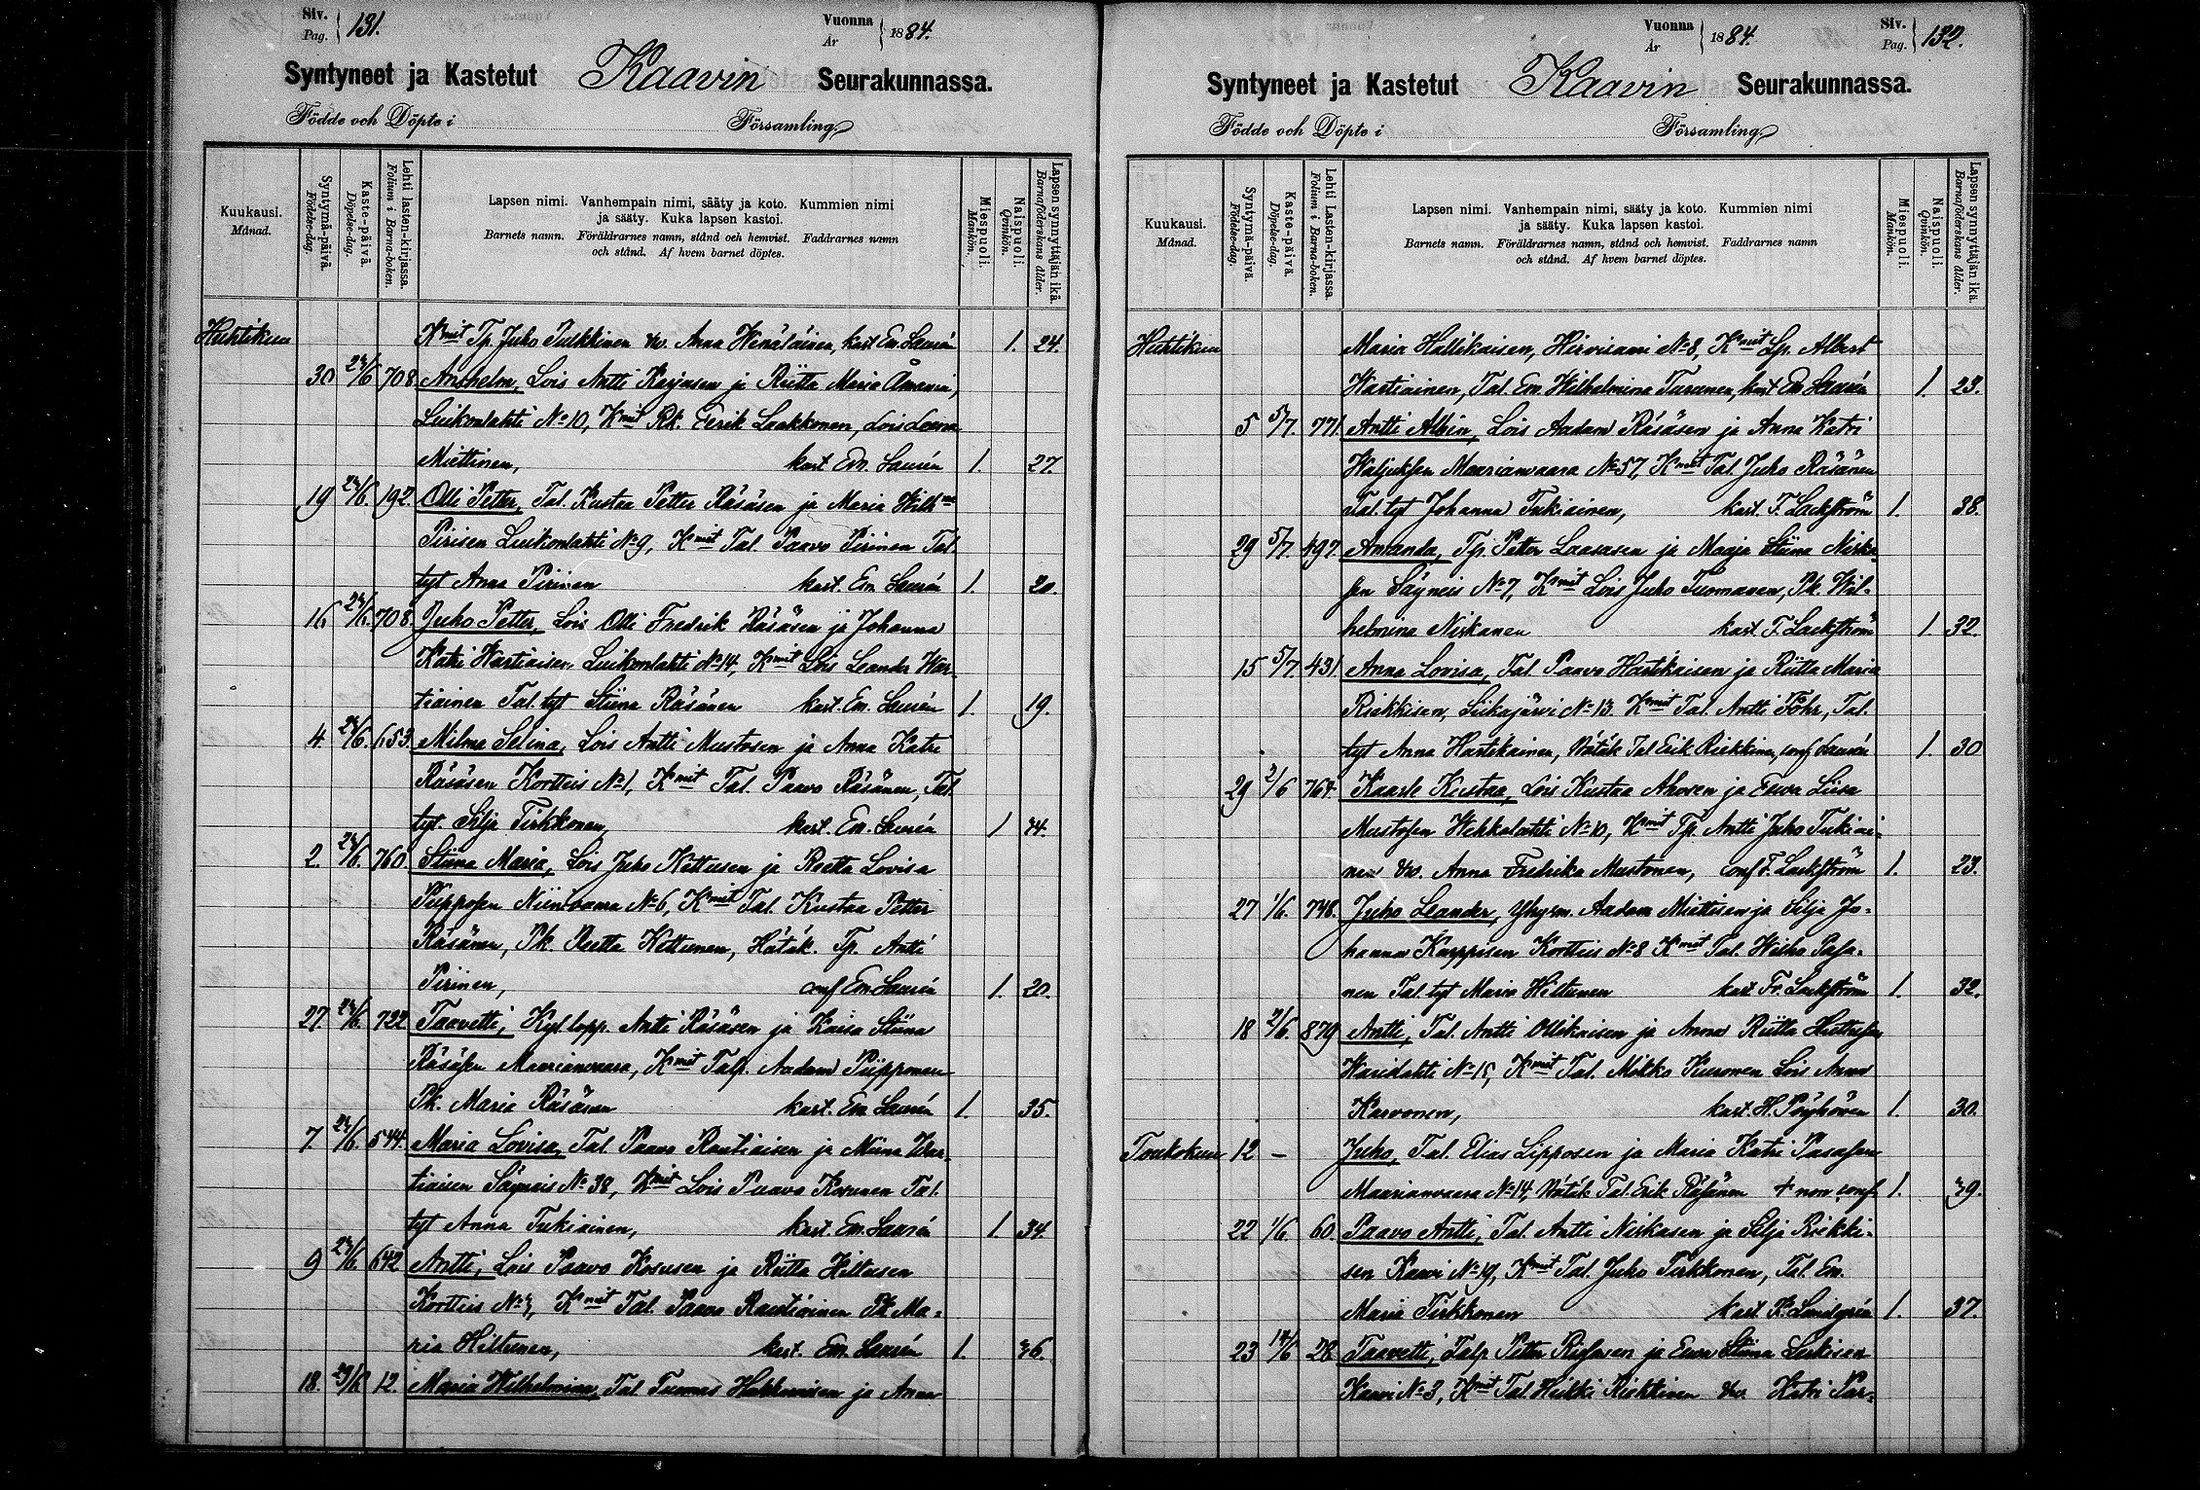 Siv. Pag. 131. Vuonna År 1884.
Syntyneet ja Kastetut Kaavin Seurakunnassa.
Födde och Döpte i Församling
Kuukausi. Månad.
Syntymä-päivä. Födelse-dag.
Kaste-päivä. Döpelse-dag.
Lehti lasten-kirjassa. Folium i Barna-boken.
Lapsen nimi. Vanhempain nimi, sääty ja koto. Kummien nimi
ja sääty. Kuka lapsen kastoi.
Barnets namn. Föräldrarnes namn, stånd och hemvist. Faddrarnes namn
och stånd. Af hvem barnet döptes.
Miespuoli. Mankön.
Naispuoli. Qvinkön.
Lapsen synnyttäjän ikä. Barnaföderskans ålder.
Huhtikuu Kmit Tp. Juho Pulkkinen vw. Anna Wenäläinen, kast. Em. Laurén 1. 24.
30 24/6 708 Anshelm, Lois Antti Karjusen ja Riitta Maria
Luikonlahti No 10, Kmit Rk. Eerik Laakkonen, Lois Leena
Miettinen, kast Em. Laurén 1. 27.
19 24/6. 192. Olli Petter, Tal. Kustaa Petter Räsäsen ja Maria Wilhne
Pirisen Luikonlahti No 9, Kmit Tal. Paavo Pirinen Tal.
tyt Anna Pirinen kast. Em. Laurén 1. 20.
16 24/6. 708. Juho Petter, Lois Olli Fredrik Räsäsen ja Johanna
Katri Wartiaisen, Luikonlahti No 14, Kmit Lois Leander War-
tiainen Tal. tyt Stiina Räsänen kast. Em. Laurén 1. 19.
4. 24/6. 653. Milma Selina, Lois Antti Mustosen ja Anna Katri
Räsäsen Kortteis No 1, Kmit Tal. Paavo Räsänen, Tal.
tyt. Silja Tirkkonen, kast. Em. Laurén 1 44.
2. 24/6. 760. Stiina Maria, Lois Juho Kettusen ja Reetta Lovisa
Piipposen Niinivaara No 6, Kmit Tal. Kustaa Petter
Räsänen, Pk. Reetta Kettunen, Hätäk. Tp. Antti
Pirinen, conf Em. Laurén 1. 20.
27 24/6. 722 Taavetti, Kyl. lopp. Antti Räsäsen ja Kaisa Stiina
Räsäsen Maarianvaara, Kmit Talp. Aadam Piipponen
Pk. Maria Räsänen kast. Em. Laurén 1. 35.
7. 24/6. 544. Maria Lovisa, Tal. Paavo Rautiaisen ja Miina War-
tiaisen Säyneis No 38, Kmit Lois Paavo Korunen Tal.
tyt Anna Tukiainen, kast. Em. Laurén 1. 34.
9 24/6. 642 Antti, Lois Paavo Kosusen ja Riitta Hiltusen
Kortteis No 4, Kmit Tal. Paavo Rautiainen Pk Ma-
ria Hiltunen, kast. Em. Laurén 1. 46.
18. 29/6 12. Maria Wilhelmina, Tal Tuomas Hakkaraisen ja Anna
Vuonna År 1884. Siv. Pag. 132.
Syntyneet ja Kastetut Kaavin Seurakunnassa.
Födde och Döpte i Församling
Kuukausi. Månad.
Syntymä-päivä. Födelse-dag.
Kaste-päivä. Döpelse-dag.
Lehti Lasten-kirjassa. Folium i Barna-boken.
Lapsen nimi. Vanhempain nimi, sääty ja koto. Kummien nimi
ja sääty. Kuka lapsen kastoi.
Barnets namn. Föräldrarnes namn, stånd och hemvist. Faddrarnes namn
och stånd. Af hvem barnet döptes.
Miespuoli. Mankön.
Naispuoli. Qvinkön.
Lapsen synnyttäjän ikä. Barnaföderskans ålder.
Huhtikuu Maria Hallikaisen, Hirvisaari No 8, Kmit Lp. Albert
Wartiainen, Tal. Em. Wilhelmina Turunen, kast Em Laurén 1. 23.
5 5/7. 771. Antti Albin, Lois Aadam Räsäsen ja Anna Katri
Waljuksen Maarianvaara No 57, Kmit Tal. Juho Räsänen
Tal. tyt Johanna Tukiainen, kast. F. Lackström 1. 38.
29 5/7. 497. Amanda, Tp. Petter Laasasen ja Maaja Stiina Niska-
sen Säyneis No 7, Kmit Lois Juho Tuomanen, Pk. Wil-
helmina Niskanen kast. F. Lackström 1. 32.
15 5/7. 431. Anna Lovisa, Tal. Paavo Hartikaisen ja Riitta Maria
Riekkisen, Siikajärvi No 13. Kmit Tal. Antti Föhr, Tal.
tyt Anna Hartikainen, Hätäk Tal Erik Riekkinen, conf Laurén 1 30
29 2/6 764. Kaarle Kustaa, Lois Kustaa Ahosen ja Eeva Liisa
Mustosen Wehkalahti No 10, Kmit Tp. Antti Juho Tukiai-
nen vw. Anna Fredrika Mustonen, conf F. Lackström 1. 23.
27 1/6. 748. Juho Leander, Yhyrm. Aadam Miettisen ja Silja Jo-
hanna Karppisen Kortteis No 8 Kmit Tal. Heikko Pasa-
nen Tal. tyt Maria Hiltunen kast Fr. Lackström 1. 32.
18 2/6. 879 Antti, Tal. Antti Ollikaisen ja Anna Riitta Huttusen
No 15, Kmit Tal. Mikko Kuronen Lois Anna
Karvonen, kast. H. Pöyhönen 1. 30.
Toukokuu 12 – Juho, Tal. Elias Lipposen ja Maria Katri Pasasen
Maarianvaara No 14, Hätäk Tal. Erik Räsänen † non conf 1. 39.
22 1/6. 60. Paavo Antti, Tal. Antti Niskasen ja Silja Riekki-
sen Kaavi No 19, Kmit Tal. Juho Tirkkonen, Tal. Em.
Maria Tirkkonen kast K. Lundgrén 1. 37.
23 14/6 28 Taavetti, Talp Petter Riisasen ja Eeva Stiina
Kaavi No 3, Kmit Tal Heikki Riekkinen vw. Katri Par-